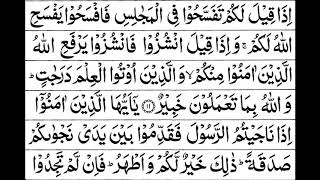 اِذَا قِيْلَ لَكُمْ تَفَسَّحُوْا فِى الْمَجٰلِسِ فَافْسَحُوْا يَفْسَحِ
اللّٰهُ لَكُمْ ۚ وَاِذَا قِيْلَ انْشُزُوْا فَانْشُزُوْا يَرْفَعِ اللّٰهُ
الَّذِيْنَ اٰمَنُوْا مِنْكُمْ ۙ وَالَّذِيْنَ اُوْتُوا الْعِلْمَ دَرَجٰتٍ ؕ
وَاللّٰهُ بِمَا تَعْمَلُوْنَ خَبِيْرٌ ۝۱۱ يٰۤاَيُّهَا الَّذِيْنَ اٰمَنُوْۤا
اِذَا نَاجَيْتُمُ الرَّسُوْلَ فَقَدِّمُوْا بَيْنَ يَدَىْ نَجْوٰىكُمْ
صَدَقَةً ؕ ذٰلِكَ خَيْرٌ لَّكُمْ وَاَطْهَرُ ؕ فَاِنْ لَّمْ تَجِدُوْا